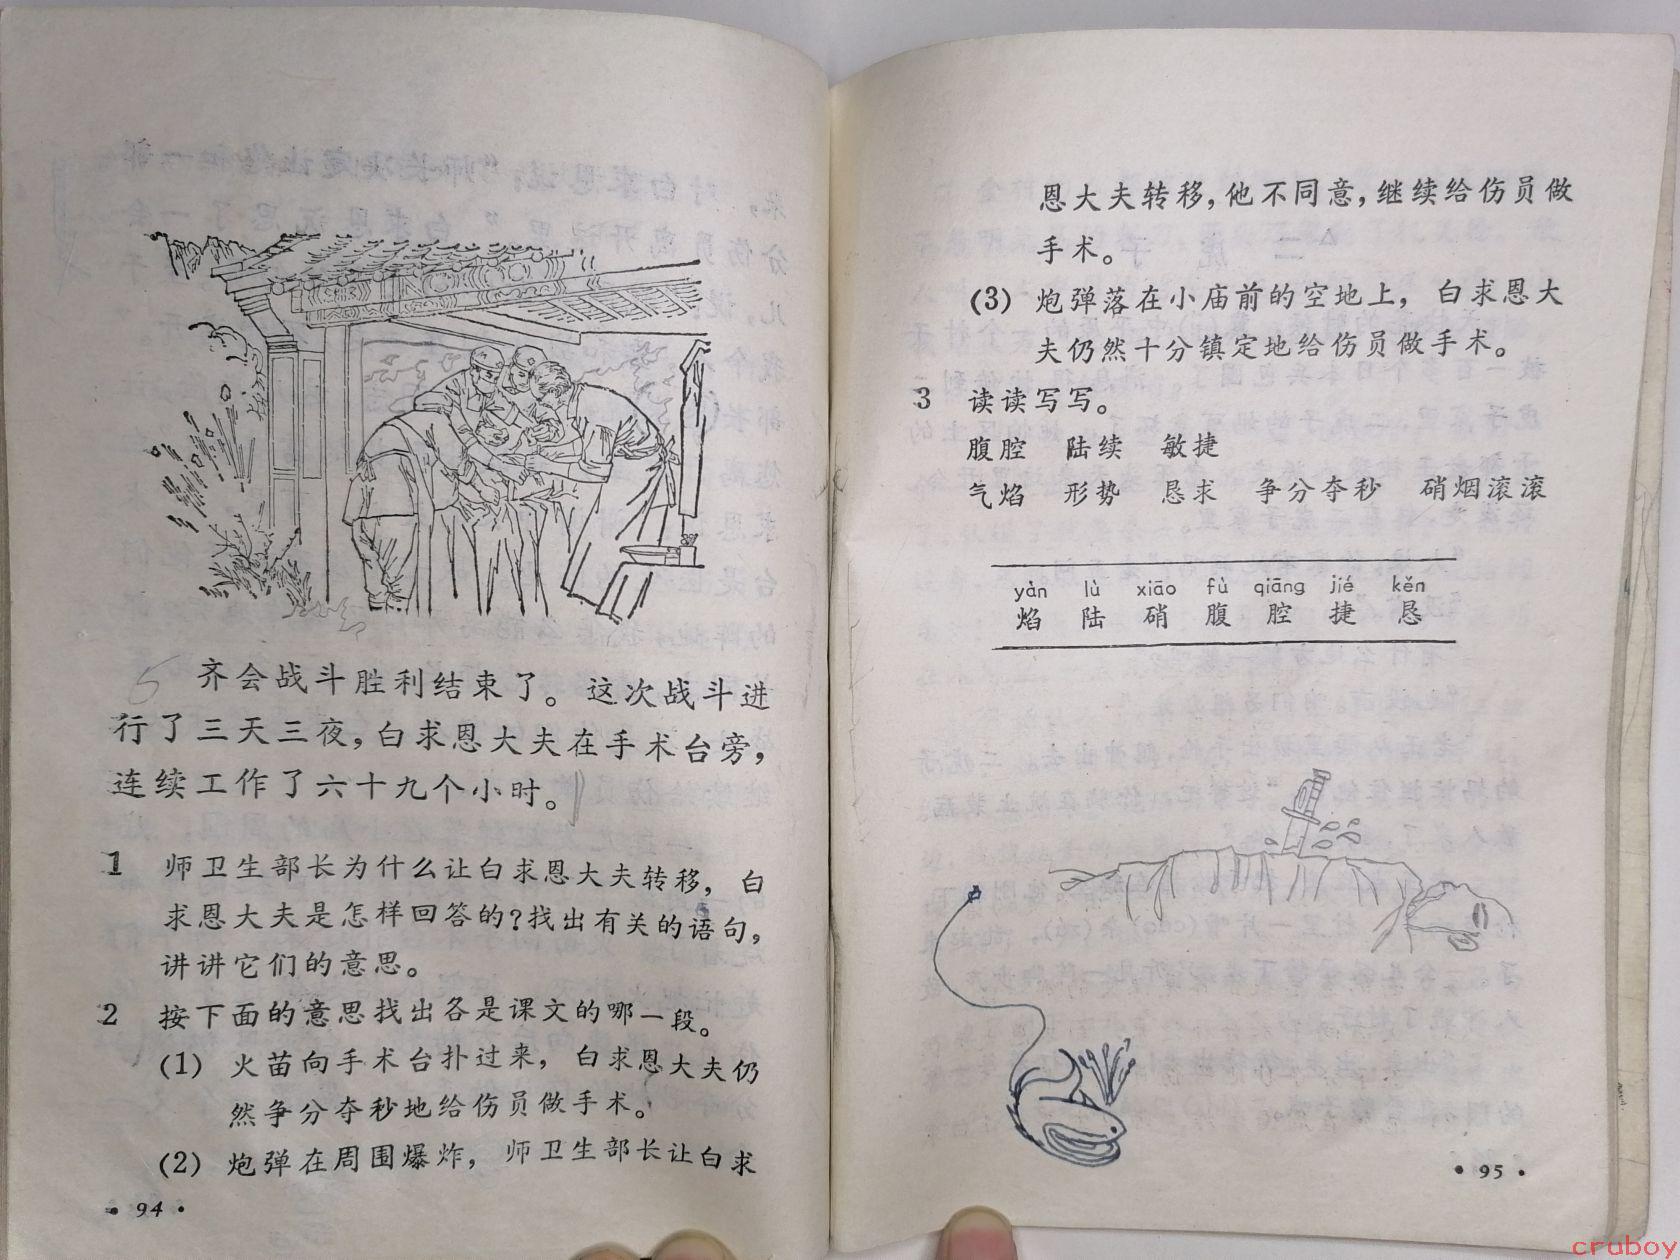 齐会战斗胜利结束了。这次战斗进
行了三天三夜，白求恩大夫在手术台旁，
连续工作了六十九个小时。
1 师卫生部长为什么让白求恩大夫转移，白
求恩大夫是怎样回答的？找出有关的语句，
讲讲它们的意思。
2 按下面的意思找出各是课文的哪一段。
(1) 火苗向手术台扑过来，白求恩大夫仍
然争分夺秒地给伤员做手术。
(2) 炮弹在周围爆炸，师卫生部长让白求
• 94 •
恩大夫转移，他不同意，继续给伤员做
手术。
(3) 炮弹落在小庙前的空地上，白求恩大
夫仍然十分镇定地给伤员做手术。
3 读读写写。
腹腔 陆续 敏捷
气焰 形势 恳求 争分夺秒 硝烟滚滚
yàn lù xiāo fù qiāng jié kěn
焰 陆 硝 腹 腔 捷 恳
• 95 •
cruboy